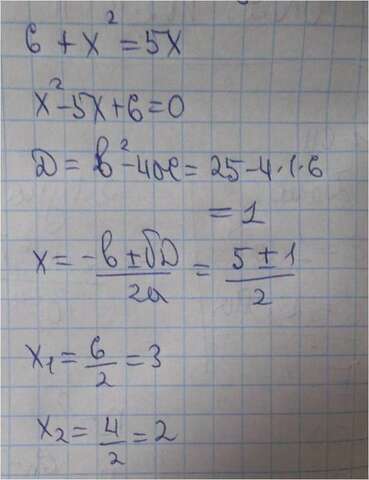 6 + x² = 5x
x² - 5x + 6 = 0
D = b² - 4ac = 25 - 4·1·6
= 1
x = -b ± √D / 2a = 5 ± 1 / 2
x₁ = 6/2 = 3
x₂ = 4/2 = 2